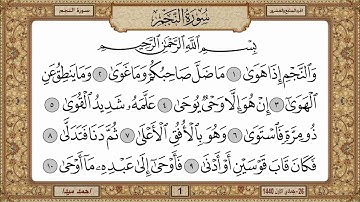 الجزء السابع والعشرون
سورة النجم
سُورَةُ النَّجْمِ
بِسْمِ اللَّهِ الرَّحْمَٰنِ الرَّحِيمِ
وَالنَّجْمِ إِذَا هَوَىٰ ١ مَا ضَلَّ صَاحِبُكُمْ وَمَا غَوَىٰ ٢ وَمَا يَنْطِقُ عَنِ
الْهَوَىٰ ٣ إِنْ هُوَ إِلَّا وَحْيٌ يُوحَىٰ ٤ عَلَّمَهُ شَدِيدُ الْقُوَىٰ ٥
ذُو مِرَّةٍ فَاسْتَوَىٰ ٦ وَهُوَ بِالْأُفُقِ الْأَعْلَىٰ ٧ ثُمَّ دَنَا فَتَدَلَّىٰ ٨
فَكَانَ قَابَ قَوْسَيْنِ أَوْ أَدْنَىٰ ٩ فَأَوْحَىٰ إِلَىٰ عَبْدِهِ مَا أَوْحَىٰ ١٠
26 - جمادي الاول 1440
1
احمد